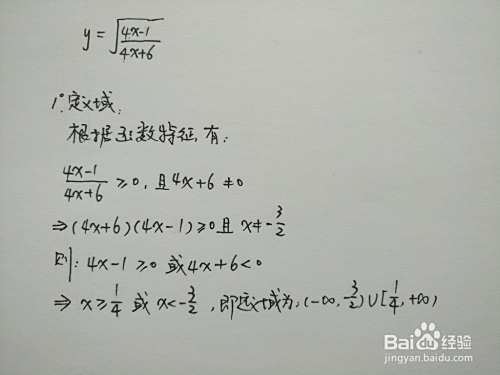 y = √((4x-1)/(4x+6))
1°.定义域:
根据函数特征,有:
(4x-1)/(4x+6) ≥0, 且4x+6≠0
⇒(4x+6)(4x-1)≥0且 x≠-3/2
则: 4x-1≥0 或4x+6<0
⇒ x≥1/4 或 x<-3/2 , 即定义域为:(-∞, 3/2)∪[1/4, +∞)
Baidu经验
jingyan.baidu.com